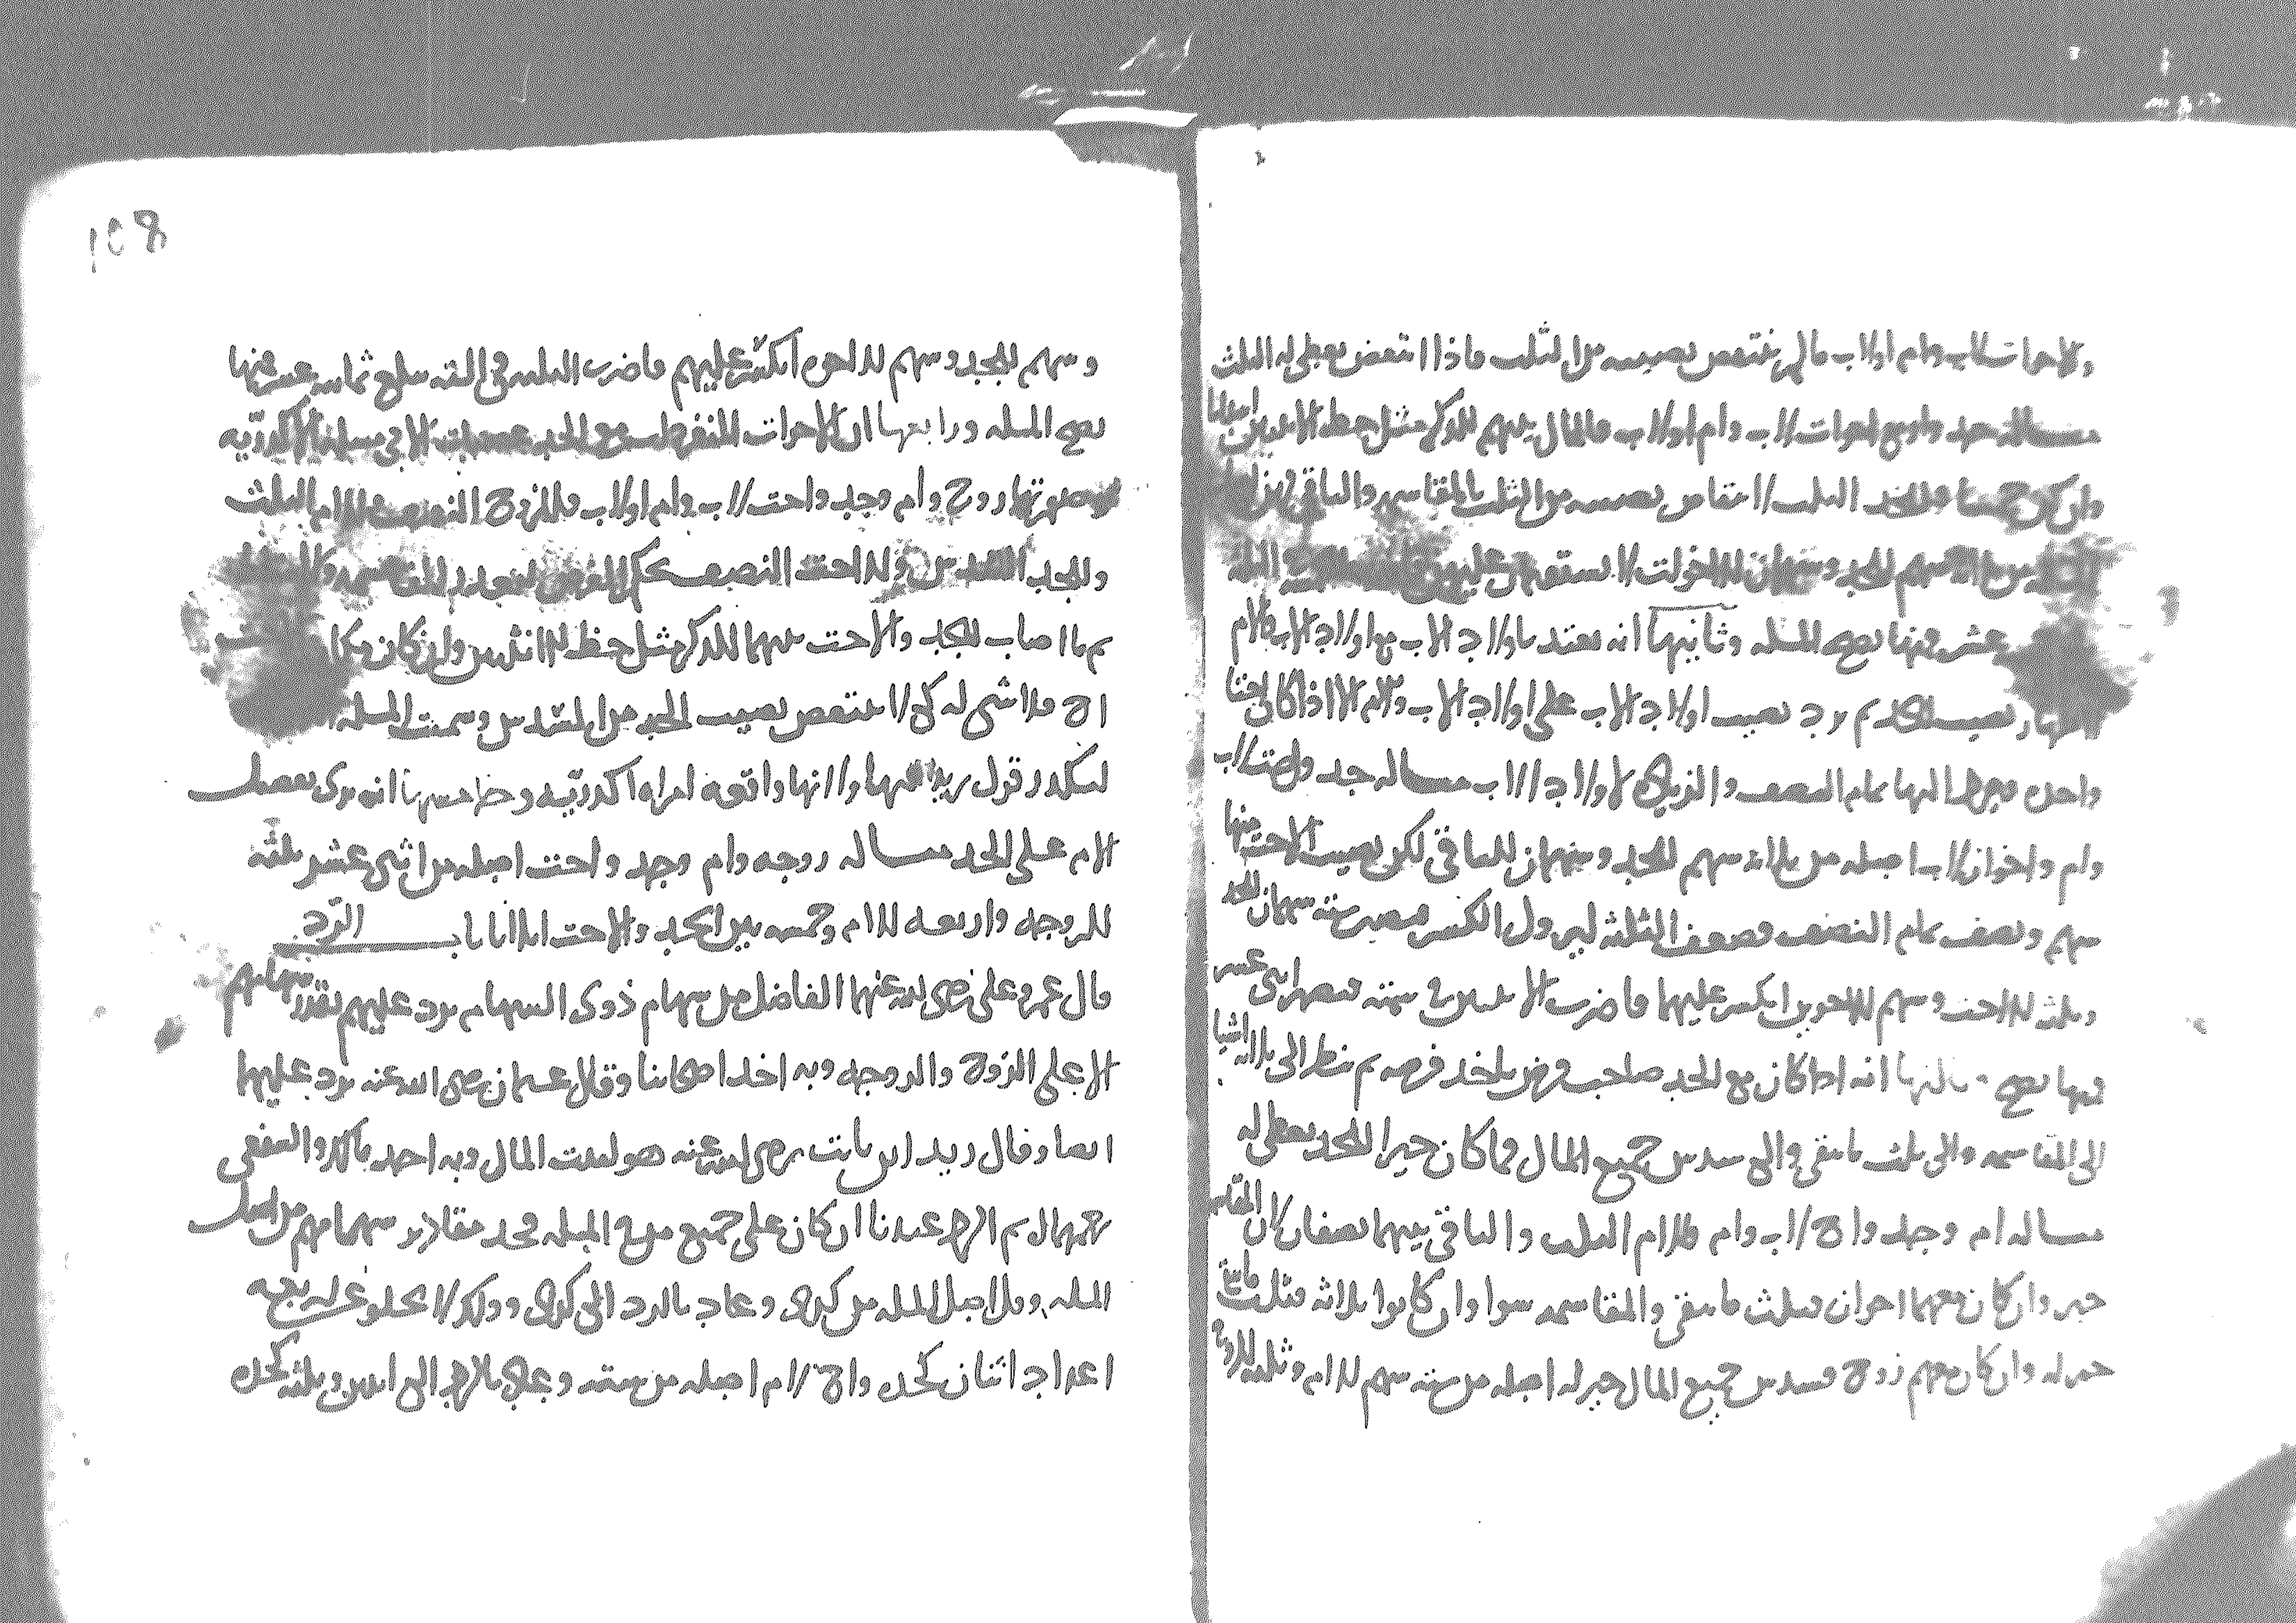 والاخوات لاب وام او لاب ما لم ينتقص نصيبه من الثلث فاذا انتقص يعطى له الثلث
مساله جد واربع اخوات لاب وام او لاب فالمال بينهم للذكر مثل حظ الانثيين
وان كن خمسا فللجد الثلث لانتقاص نصيبه من الثلث بالمقاسمه والباقي لهن
سهم للجد وسهمان للاخوات لا يستقيم عليهن
عشر فمنها تصح المسله وثانيها انه يعتد باولاد الاب مع اولاد الاب والام
نصيب الجد ثم يرد نصيب اولاد الاب على اولاد الاب والام الا اذا كانت
واحده فيرد اليها تمام النصف والزياده لاولاد الاب مساله جد واخت لاب
وام واخوان لاب اصله من ثلاثه سهم للجد وسهمان للباقي لكن نصيب الاخت منها
سهم ونصف تمام النصف فضعف الثلثه ليزول الكسر فيصير سته سهمان للجد
وثلث للاخت وسهم للاخوين انكسر عليهما فاضرب الاثنين في سته فيصير اثنى عشر
فمنها تصح وثالثها انه اذا كان مع الجد صاحب فرض ياخذ فرضه ثم ينظر الى ثلاثه اشيا
الى المقاسمه والى ثلث ما بقي والى سدس جميع المال فما كان خيرا للجد يعطى له
مساله ام وجد واخ لاب وام فللام الثلث والباقي بينهما نصفان لان المقاسمه
خير وان كان معهما اخوان فثلث ما بقي والمقاسمه سوا وان كانوا ثلاثه فثلث ما بقي
خير له وان كان معهم زوج فسدس جميع المال خير له اصله من سته سهم للام وثلثه للزوج
١٥8
وسهم للجد وسهم للاخوه انكسر عليهم فاضرب الثلثه في السته يبلغ ثمانيه عشر منها
تصح المسله ورابعها ان الاخوات المنفردات مع الجد عصبات الا في مساله الاكدريه
وصورتها زوج وام وجد واخت لاب وام او لاب فللزوج النصف وللام الثلث
وللجد السدس وللاخت النصف بحكم الفرض لتعذر المقاسمه
ثم ما اصاب للجد والاخت بينهما للذكر مثل حظ الانثيين وان كان مكان
اخ فلا شى له كي لا ينتقص نصيب الجد من السدس وسميت المسله
لتكدر قول زيد فيها ولانها واقعه امراه اكدريه وخامسها انه يرى تفضيل
الام على الجد مساله زوجه وام وجد واخت اصله من اثنى عشر ثلثه
للزوجه واربعه للام وخمسه بين الجد والاخت اثلاثا باب الرد
قال عمر وعلى رضى الله عنهما الفاضل من سهام ذوى السهام يرد عليهم بقدر سهامهم
الا على الزوج والزوجه وبه اخذ اصحابنا وقال عثمان رضى الله عنه يرد عليهما
ايضا وقال زيد ابن ثابت رضى الله عنه هو لبيت المال وبه اخذ مالك والشافعى
رحمهما الله ثم الرد عندنا ان كان على جميع من فى المسله فخذ مقادير سهامهم من اصل
المسله وقل اصل المسله من كذى وعاد بالرد الى كذى وذلك لا يخلو عن اربعه
اعداد اثنان كجده واخ لام اصله من سته وعاد بالرد الى اثنين وثلثه كجده